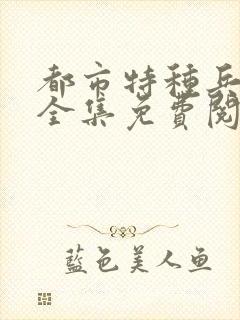 都市特种兵
全集免費閱
藍色美人鱼